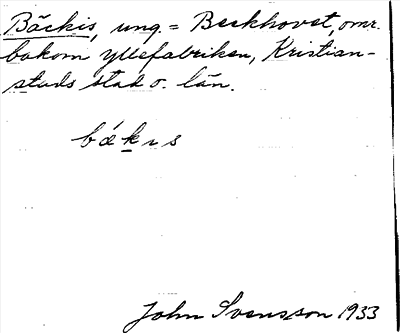 Bäckis, ung. = Beckhovet, omr.
bakom yllefabriken, Kristian-
stads stad o. län.
bǽkıs
John Svensson 1933